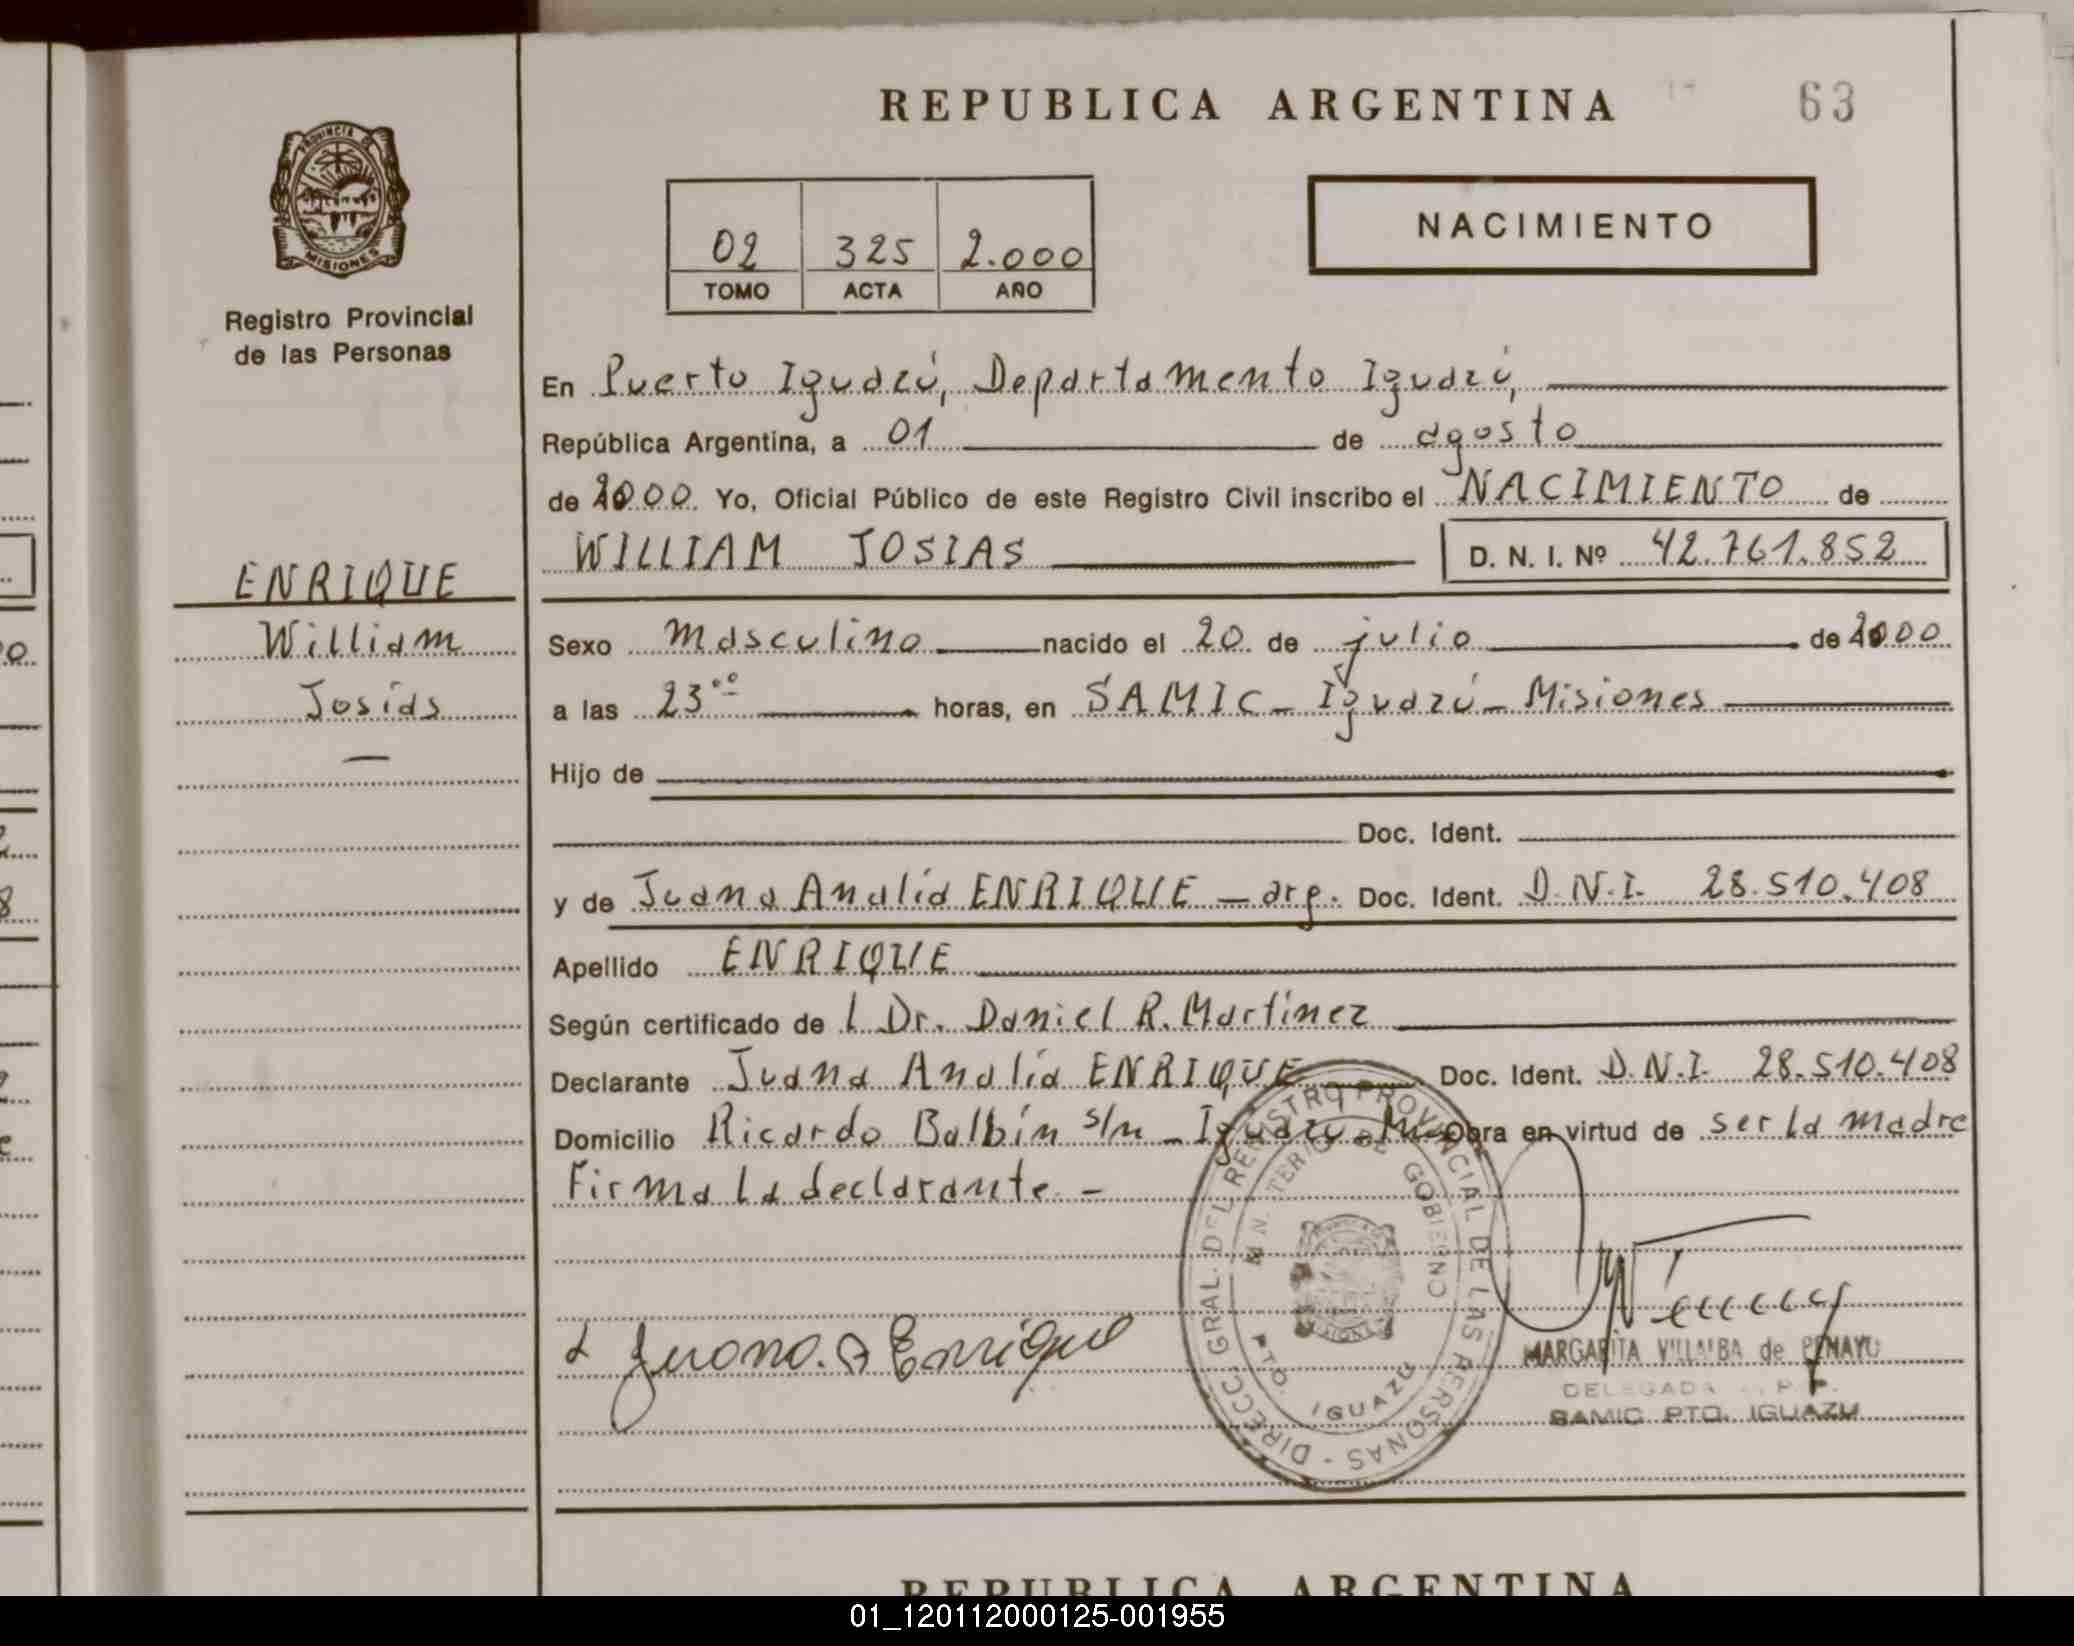 REPUBLICA ARGENTINA
63
PROVINCIA DE MISIONES
Registro Provincial
de las Personas
02 325 2.000
TOMO ACTA AÑO
NACIMIENTO
En Puerto Iguazú, Departamento Iguazú,
República Argentina, a 01 de agosto
de 2000 Yo, Oficial Público de este Registro Civil inscribo el NACIMIENTO de
WILLIAM JOSIAS D. N. I. Nº 42.761.852
ENRIQUE
William
Josías
—
Sexo masculino nacido el 20 de julio de 2000
a las 23ºº horas, en SAMIC - Iguazú - Misiones
Hijo de
Doc. Ident.
y de Juana Analía ENRIQUE — arg. Doc. Ident. D.N.I. 28.510.408
Apellido ENRIQUE
Según certificado de l Dr. Daniel R. Martínez
Declarante Juana Analía ENRIQUE Doc. Ident. D.N.I. 28.510.408
Domicilio Ricardo Balbín s/n - Iguazú - Mis. Obra en virtud de ser la madre
Firma la declarante. -
Juana. A Enrique
DIRECC. GRAL. DEL REGISTRO PROVINCIAL DE LAS PERSONAS -
MINISTERIO DE GOBIERNO
PTO. IGUAZU
MARGARITA VILLALBA de PENAYO
DELEGADA R. P. P.
SAMIC PTO. IGUAZU
REPUBLICA ARGENTINA
01_120112000125-001955